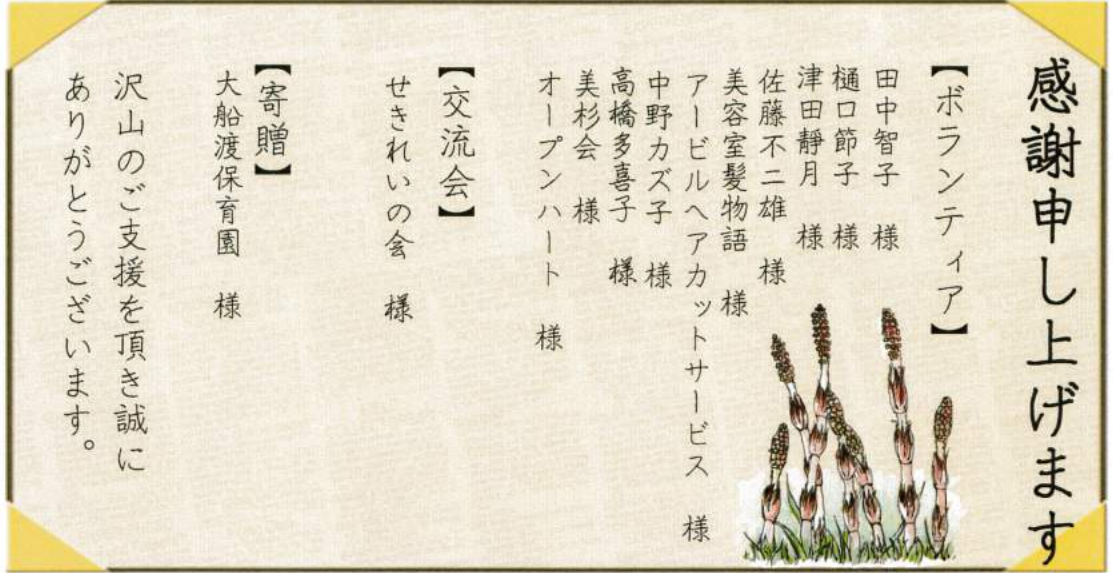 感謝申し上げます
【ボランティア】
田中智子 様
樋口節子 様
津田靜月 様
佐藤不二雄 様
美容室髪物語 様
アービルヘアカットサービス 様
中野カズ子 様
高橋多喜子 様
美杉会 様
オープンハート 様
【交流会】
せきれいの会 様
【寄贈】
大船渡保育園 様
沢山のご支援を頂き誠に
ありがとうございます。